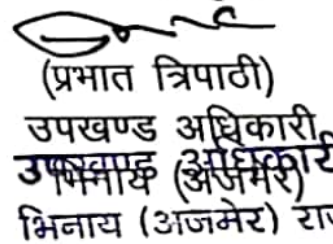 (प्रभात त्रिपाठी)
उपखण्ड अधिकारी
उपखण्ड अधिकारी
भिनाय (अजमेर)
भिनाय (अजमेर) रा